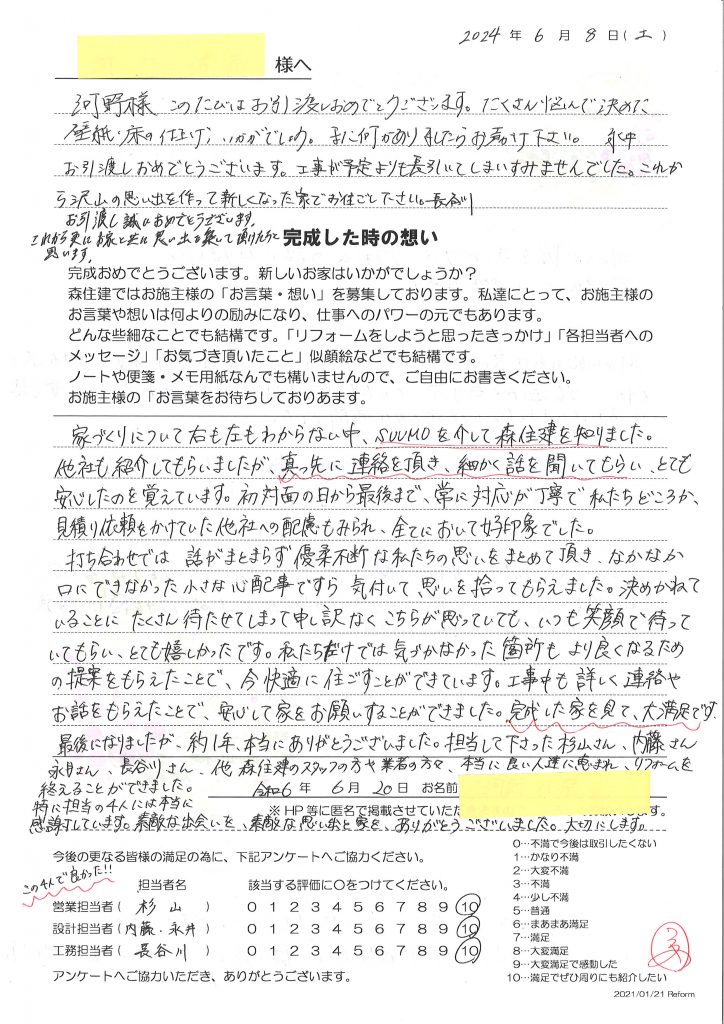 2024年 6月 8日(土)
様へ
河野様 このたびはお引渡しおめでとうございます。たくさん悩んで決めた
壁紙・床の仕上げ、いかがでしょう。また何かありましたらお声かけ下さい。 永井
お引渡しおめでとうございます。工事が予定よりも長引いてしまいすみませんでした。これか
ら沢山の思い出を作って新しくなった家でお過ごし下さい。長谷川
お引渡し誠におめでとうございます。
これから更に
思います。
完成した時の想い
完成おめでとうございます。新しいお家はいかがでしょうか?
森住建ではお施主様の「お言葉・想い」を募集しております。私達にとって、お施主様の
お言葉や想いは何よりの励みになり、仕事へのパワーの元でもあります。
どんな些細なことでも結構です。「リフォームをしようと思ったきっかけ」「各担当者への
メッセージ」「お気づき頂いたこと」似顔絵などでも結構です。
ノートや便箋・メモ用紙なんでも構いませんので、ご自由にお書きください。
お施主様の「お言葉をお待ちしておりあます。
家づくりについて右も左もわからない中、SUUMOを介して森住建を知りました。
他社も紹介してもらいましたが、真っ先に連絡を頂き、細かく話を聞いてもらい、とても
安心したのを覚えています。初対面の日から最後まで、常に対応が丁寧で私たちどころか、
見積り依頼をかけていた他社への配慮もみられ、全てにおいて好印象でした。
打ち合わせでは 話がまとまらず優柔不断な私たちの思いをまとめて頂き、なかなか
口にできなかった小さな心配事ですら 気付いて思いを拾ってもらえました。決めかねて
いることに たくさん待たせてしまって申し訳なくこちらが思っていても、いつも笑顔で待って
いてもらい、とても嬉しかったです。私たちだけでは気づかなかった箇所も より良くなるため
の提案をもらえたことで、今快適に住ごすことができています。工事中も詳しく連絡や
お話をもらえたことで、安心して家をお願いすることができました。完成した家を見て、大満足です。
最後になりましたが、約1年、本当にありがとうございました。担当して下さった杉山さん、内藤さん
永井さん、長谷川さん、他森住建のスタッフの方や業者の方々、本当に良い人達に恵まれ、リフォームを
終えることができました。
令和6年 6月 20日 お名前
特に担当の4人には本当に
※HP等に匿名で掲載させていただ
感謝しています。素敵な出会いを、素敵な思い出と家を、ありがとうございました。大切にします。
今後の更なる皆様の満足の為に、下記アンケートへご協力ください。
この4人で良かった!!
担当者名 該当する評価に○をつけてください。
営業担当者( 杉山 ) 0 1 2 3 4 5 6 7 8 9 10
設計担当者(内藤・永井) 0 1 2 3 4 5 6 7 8 9 10
工務担当者( 長谷川 ) 0 1 2 3 4 5 6 7 8 9 10
アンケートへご協力いただき、ありがとうございます。
0…不満で今後は取引したくない
1…かなり不満
2…大変不満
3…不満
4…少し不満
5…普通
6…まあまあ満足
7…満足
8…大変満足
9…大変満足で感動した
10…満足でぜひ周りにも紹介したい
2021/01/21 Reform